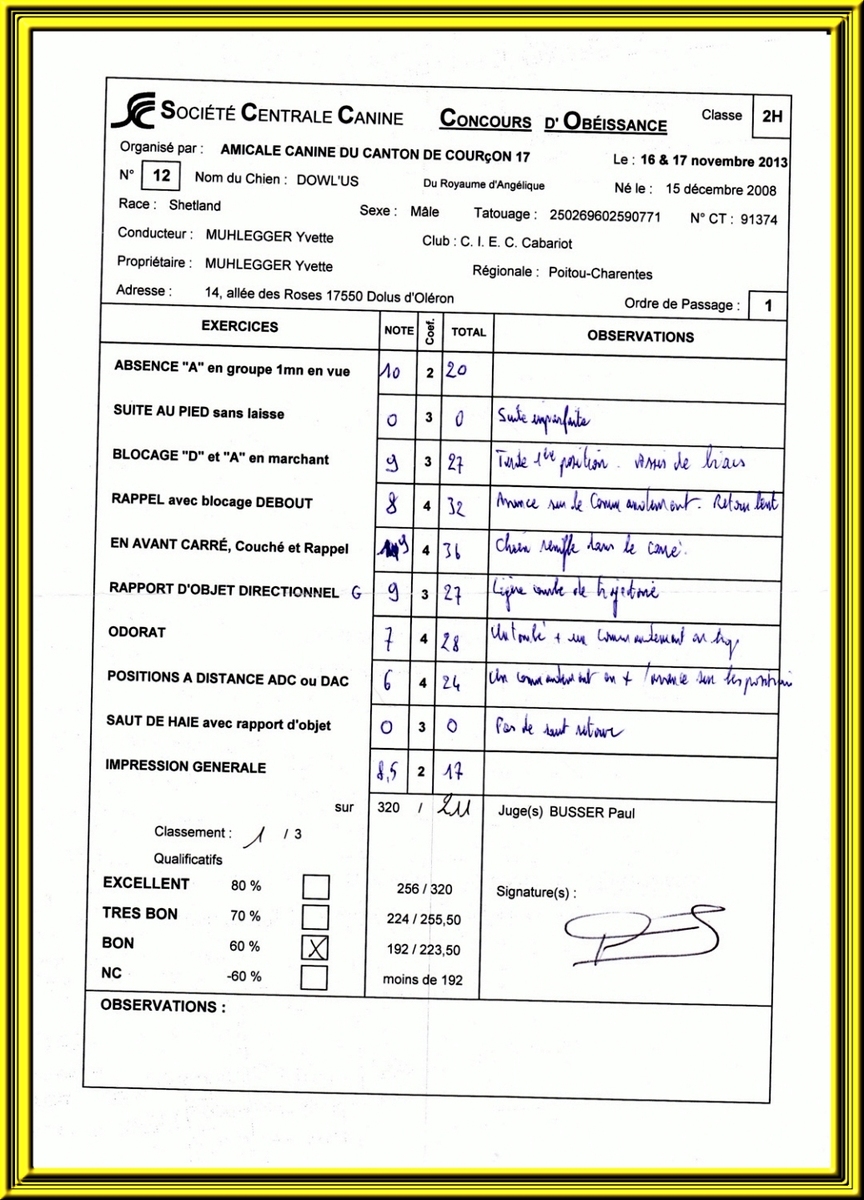 SOCIÉTÉ CENTRALE CANINE CONCOURS D' OBÉISSANCE Classe 2H
Organisé par : AMICALE CANINE DU CANTON DE COURÇON 17 Le : 16 & 17 novembre 2013
N° 12 Nom du Chien : DOWL'US Du Royaume d'Angélique Né le : 15 décembre 2008
Race : Shetland Sexe : Mâle Tatouage : 250269602590771 N° CT : 91374
Conducteur : MUHLEGGER Yvette Club : C. I. E. C. Cabariot
Propriétaire : MUHLEGGER Yvette Régionale : Poitou-Charentes
Adresse : 14, allée des Roses 17550 Dolus d'Oléron Ordre de Passage : 1
EXERCICES NOTE Coef. TOTAL OBSERVATIONS
ABSENCE "A" en groupe 1mn en vue 10 2 20
SUITE AU PIED sans laisse 0 3 0 Suite imparfaite
BLOCAGE "D" et "A" en marchant 9 3 27 Tarde 1ère position . Assis de biais
RAPPEL avec blocage DEBOUT 8 4 32 Avance sur le Commandement. Retour lent
EN AVANT CARRÉ, Couché et Rappel 9 4 36 Chien reniffle dans le carré.
RAPPORT D'OBJET DIRECTIONNEL G 9 3 27 Ligne courbe de trajectoire
ODORAT 7 4 28 + un commandement en
POSITIONS A DISTANCE ADC ou DAC 6 4 24 Un commandement en + / avance sur les positions
SAUT DE HAIE avec rapport d'objet 0 3 0 Pas de saut retour
IMPRESSION GENERALE 8,5 2 17
sur 320 / 211 Juge(s) BUSSER Paul
Classement : 1 / 3
Qualificatifs
EXCELLENT 80 % 256 / 320 Signature(s) :
TRES BON 70 % 224 / 255,50
BON 60 % X 192 / 223,50
NC -60 % moins de 192
OBSERVATIONS :